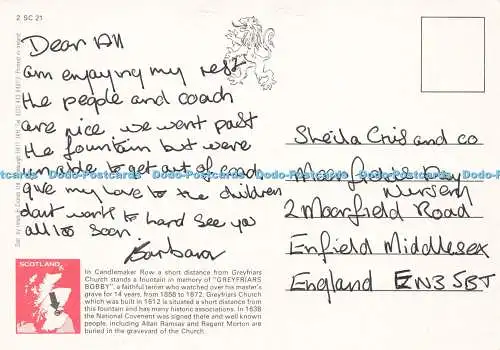 2 SC 21
Dear All
am enjoying my rest
the people and coach
are nice. we went past
the fountain but were
unable to get out of coach
give my love to the children
dont work to hard see you
all to soon.
Barbara
Sheila Cris and co
Moorfields Day
Nursery
2 Moorfield Road
Enfield Middlesex
England EN3 5BJ
SCOTLAND
In Candlemaker Row a short distance from Greyfriars
Church stands a fountain in memory of "GREYFRIARS
BOBBY", a faithful terrier who watched over his master's
grave for 14 years, from 1858 to 1872. Greyfriars Church
which was built in 1612 is situated a short distance from
this fountain and has many historic associations. In 1638
the National Covenant was signed there and well known
people, including Allan Ramsay and Regent Morton are
buried in the graveyard of the Church.
Dodo-Postcards Dodo-Postcards Dodo-Postcards Dodo-Postcards